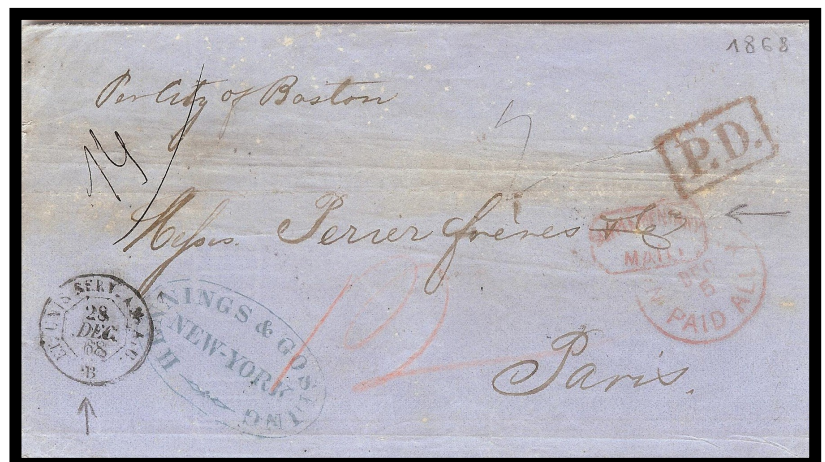 1868
Per City of Boston
14
P.D.
Messrs. Perier frères & Co
MAIL
DEC
5
PAID ALL
12
ET. UNIS SERV. AM. A.C.
28
DEC.
68
B
NINGS & GOSLING
NEW-YORK
Paris.